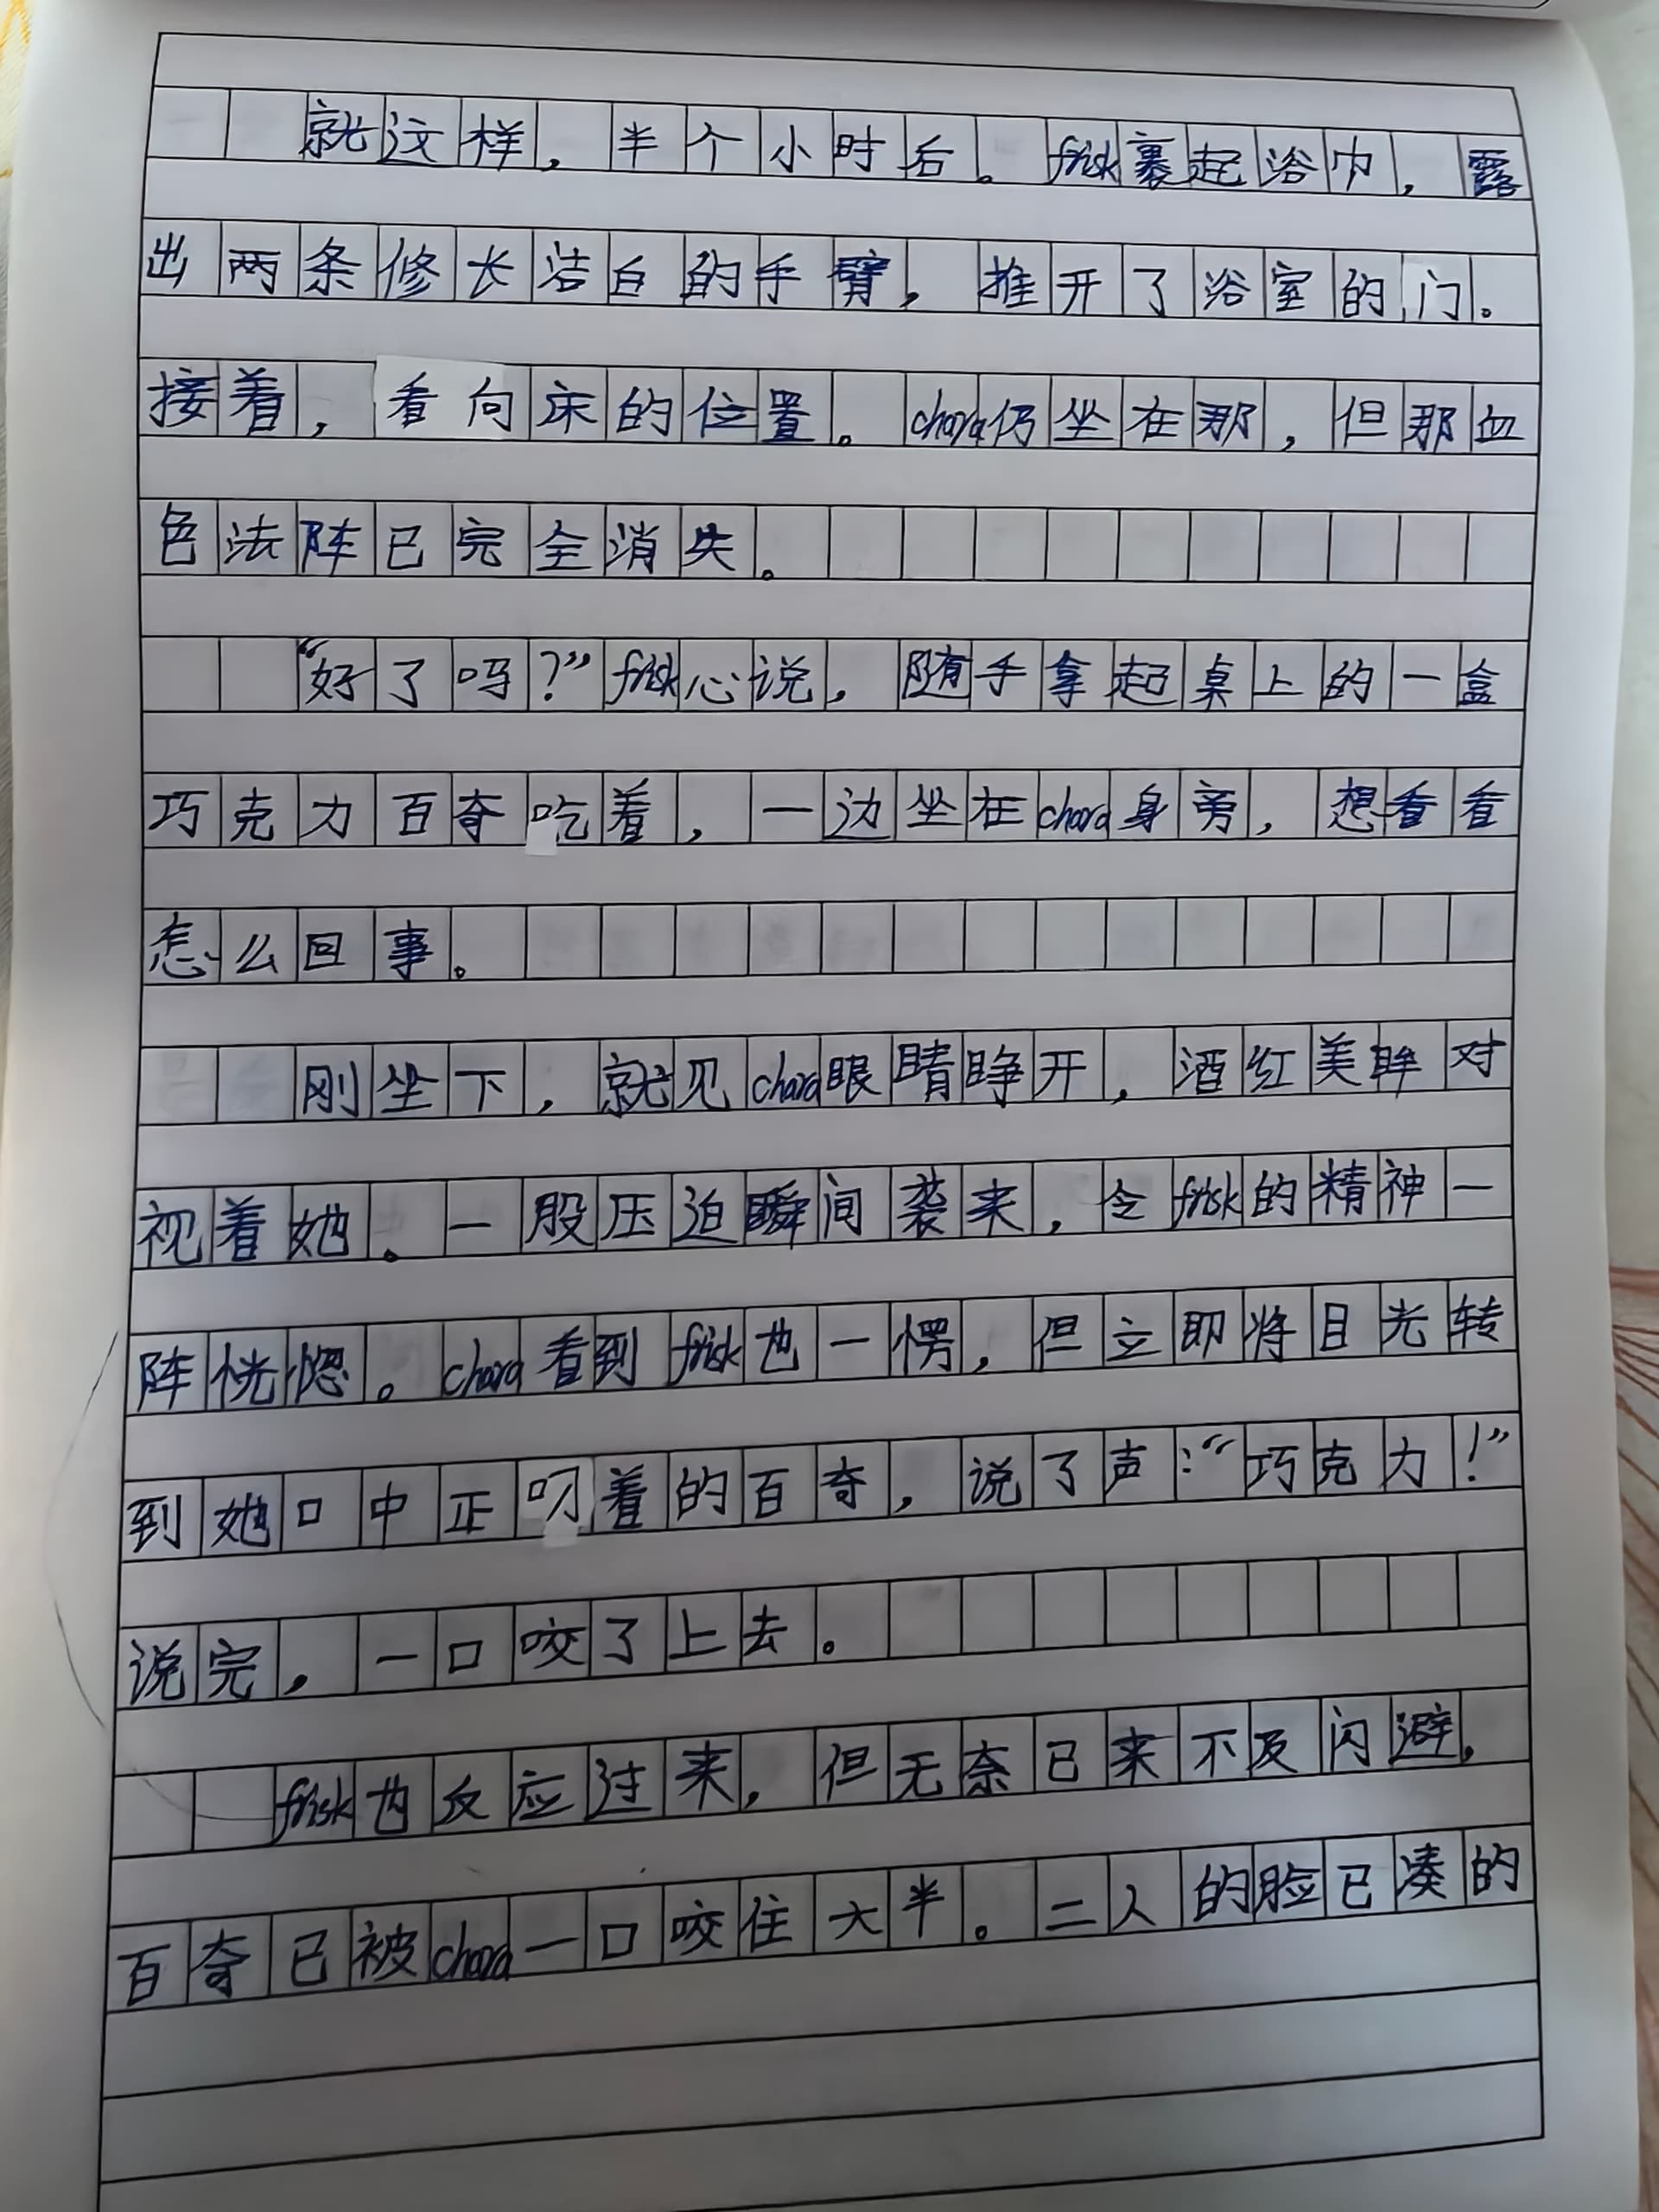 就这样，半个小时后。frisk裹起浴巾，露
出两条修长洁白的手臂，推开了浴室的门。
接着，看向床的位置。chara仍坐在那，但那血
色法阵已完全消失。
“好了吗？”frisk心说，随手拿起桌上的一盒
巧克力百奇吃着，一边坐在chara身旁，想看看
怎么回事。
刚坐下，就见chara眼睛睁开，酒红美眸对
视着她。一股压迫瞬间袭来，令frisk的精神一
阵恍惚。chara看到frisk也一愣，但立即将目光转
到她口中正叼着的百奇，说了声：“巧克力！”
说完，一口咬了上去。
frisk也反应过来，但无奈已来不及闪避，
百奇已被chara一口咬住大半。二人的脸已凑的